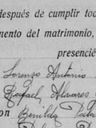 después de cumplir tod
mento del matrimonio,
presenció
Lorenzo Antonio
Rafael Alvares
Benilda